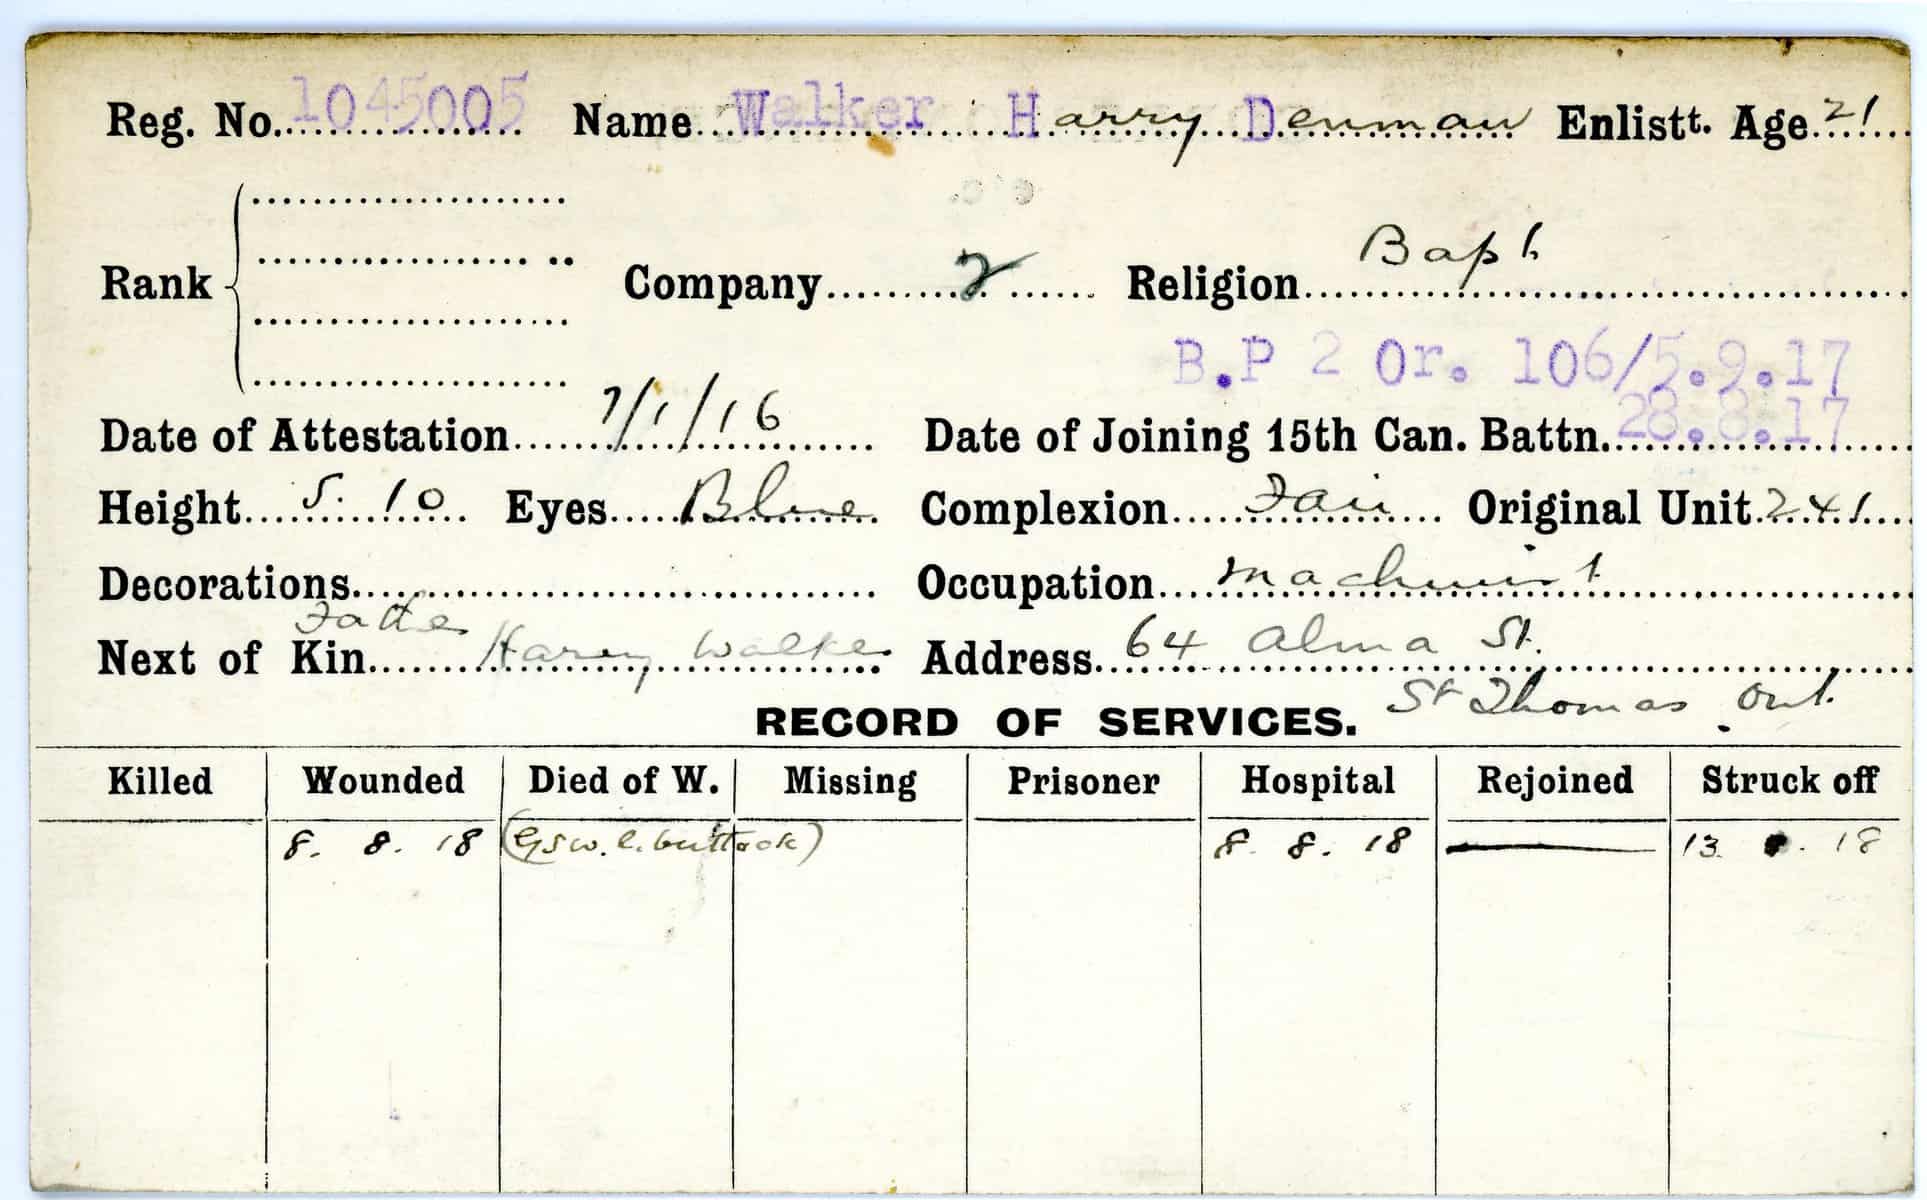 Reg. No. 1045005 Name Walker Harry Denman Enlistt. Age 21
Rank Company 2 Religion Bapt
B.P 2 Or. 106/5.9.17
Date of Attestation 7/1/16 Date of Joining 15th Can. Battn. 28.8.17
Height 5. 10 Eyes Blue Complexion Fair Original Unit 241
Decorations Occupation machinist
Father
Next of Kin Harry Walker Address 64 Alma St.
St Thomas Ont.
RECORD OF SERVICES.
Killed Wounded Died of W. Missing Prisoner Hospital Rejoined Struck off
8. 8. 18 (GSW. l. buttock) 8. 8. 18 13. 8. 18